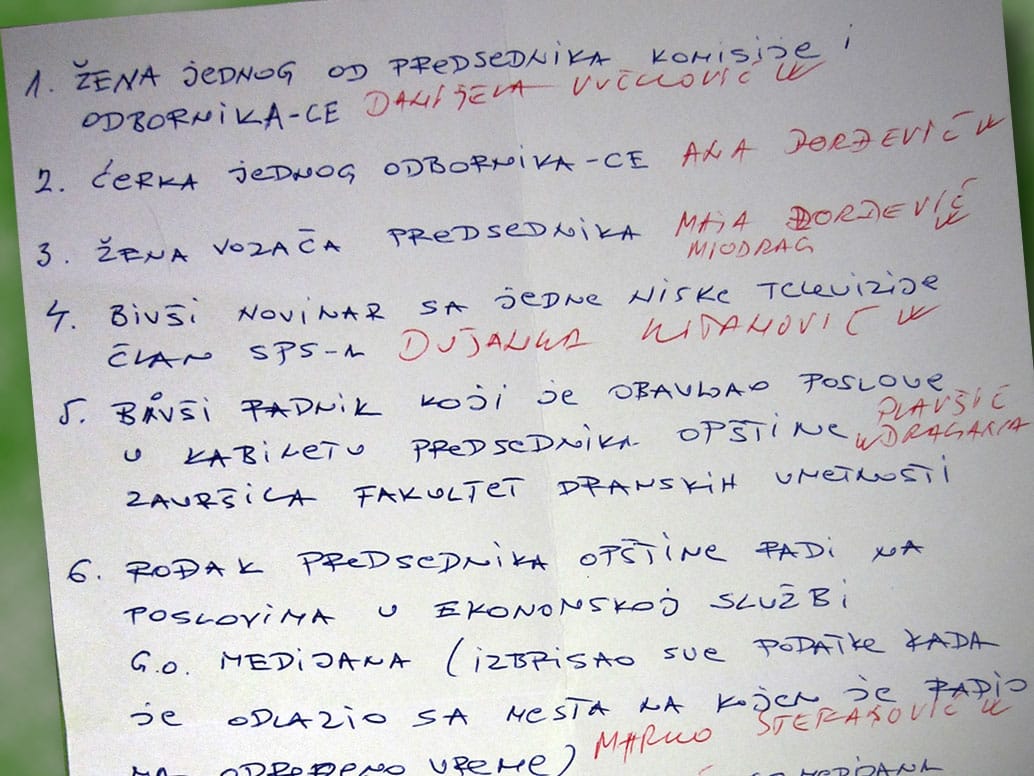 1. ŽENA JEDNOG OD PREDSEDNIKA KOMISIJE I
ODBORNIKA-CE DANIJELA VUČKOVIĆ
2. ĆERKA JEDNOG ODBORNIKA-CE ANA ĐORĐEVIĆ
3. ŽENA VOZAČA PREDSEDNIKA MAJA ĐORĐEVIĆ
MIODRAG
4. BIVŠI NOVINAR SA JEDNE NISKE TELEVIZIJE
ČLAN SPS-A DUJANKA
5. BIVŠI RADNIK KOJI JE OBAVLJAO POSLOVE
PLAVŠIĆ
U KABINETU PREDSEDNIKA OPŠTINE DRAGANA
ZAVRŠILA FAKULTET DRAMSKIH UMETNOSTI
6. ROĐAK PREDSEDNIKA OPŠTINE RADI NA
POSLOVIMA U EKONOMSKOJ SLUŽBI
G.O. MEDIJANA (IZBRISAO SVE PODATKE KADA
JE ODLAZIO SA MESTA NA KOJEM JE RADIO
NA ODREĐENO VREME) MARKO STEFANOVIĆ
MEDIJANA